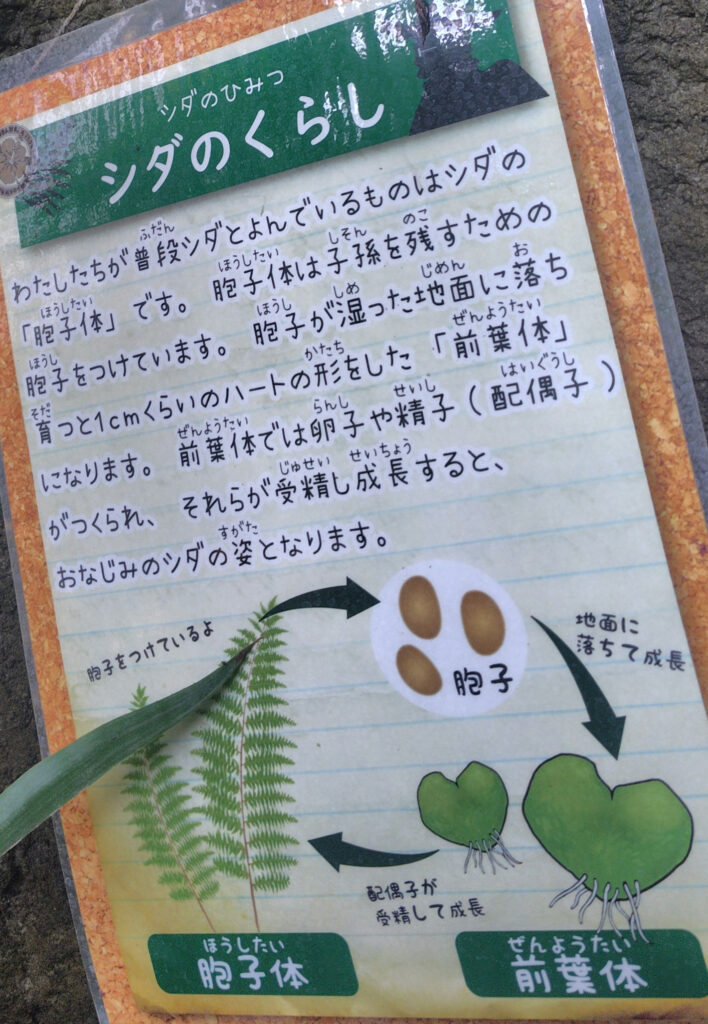 シダのひみつ
シダのくらし
わたしたちが普段シダとよんでいるものはシダの
「胞子体」です。胞子体は子孫を残すための
胞子をつけています。胞子が湿った地面に落ち
育つと1cmくらいのハートの形をした「前葉体」
になります。前葉体では卵子や精子(配偶子)
がつくられ、それらが受精し成長すると、
おなじみのシダの姿となります。
胞子をつけているよ
胞子
地面に
落ちて成長
配偶子が
受精して成長
ほうしたい
胞子体
ぜんようたい
前葉体